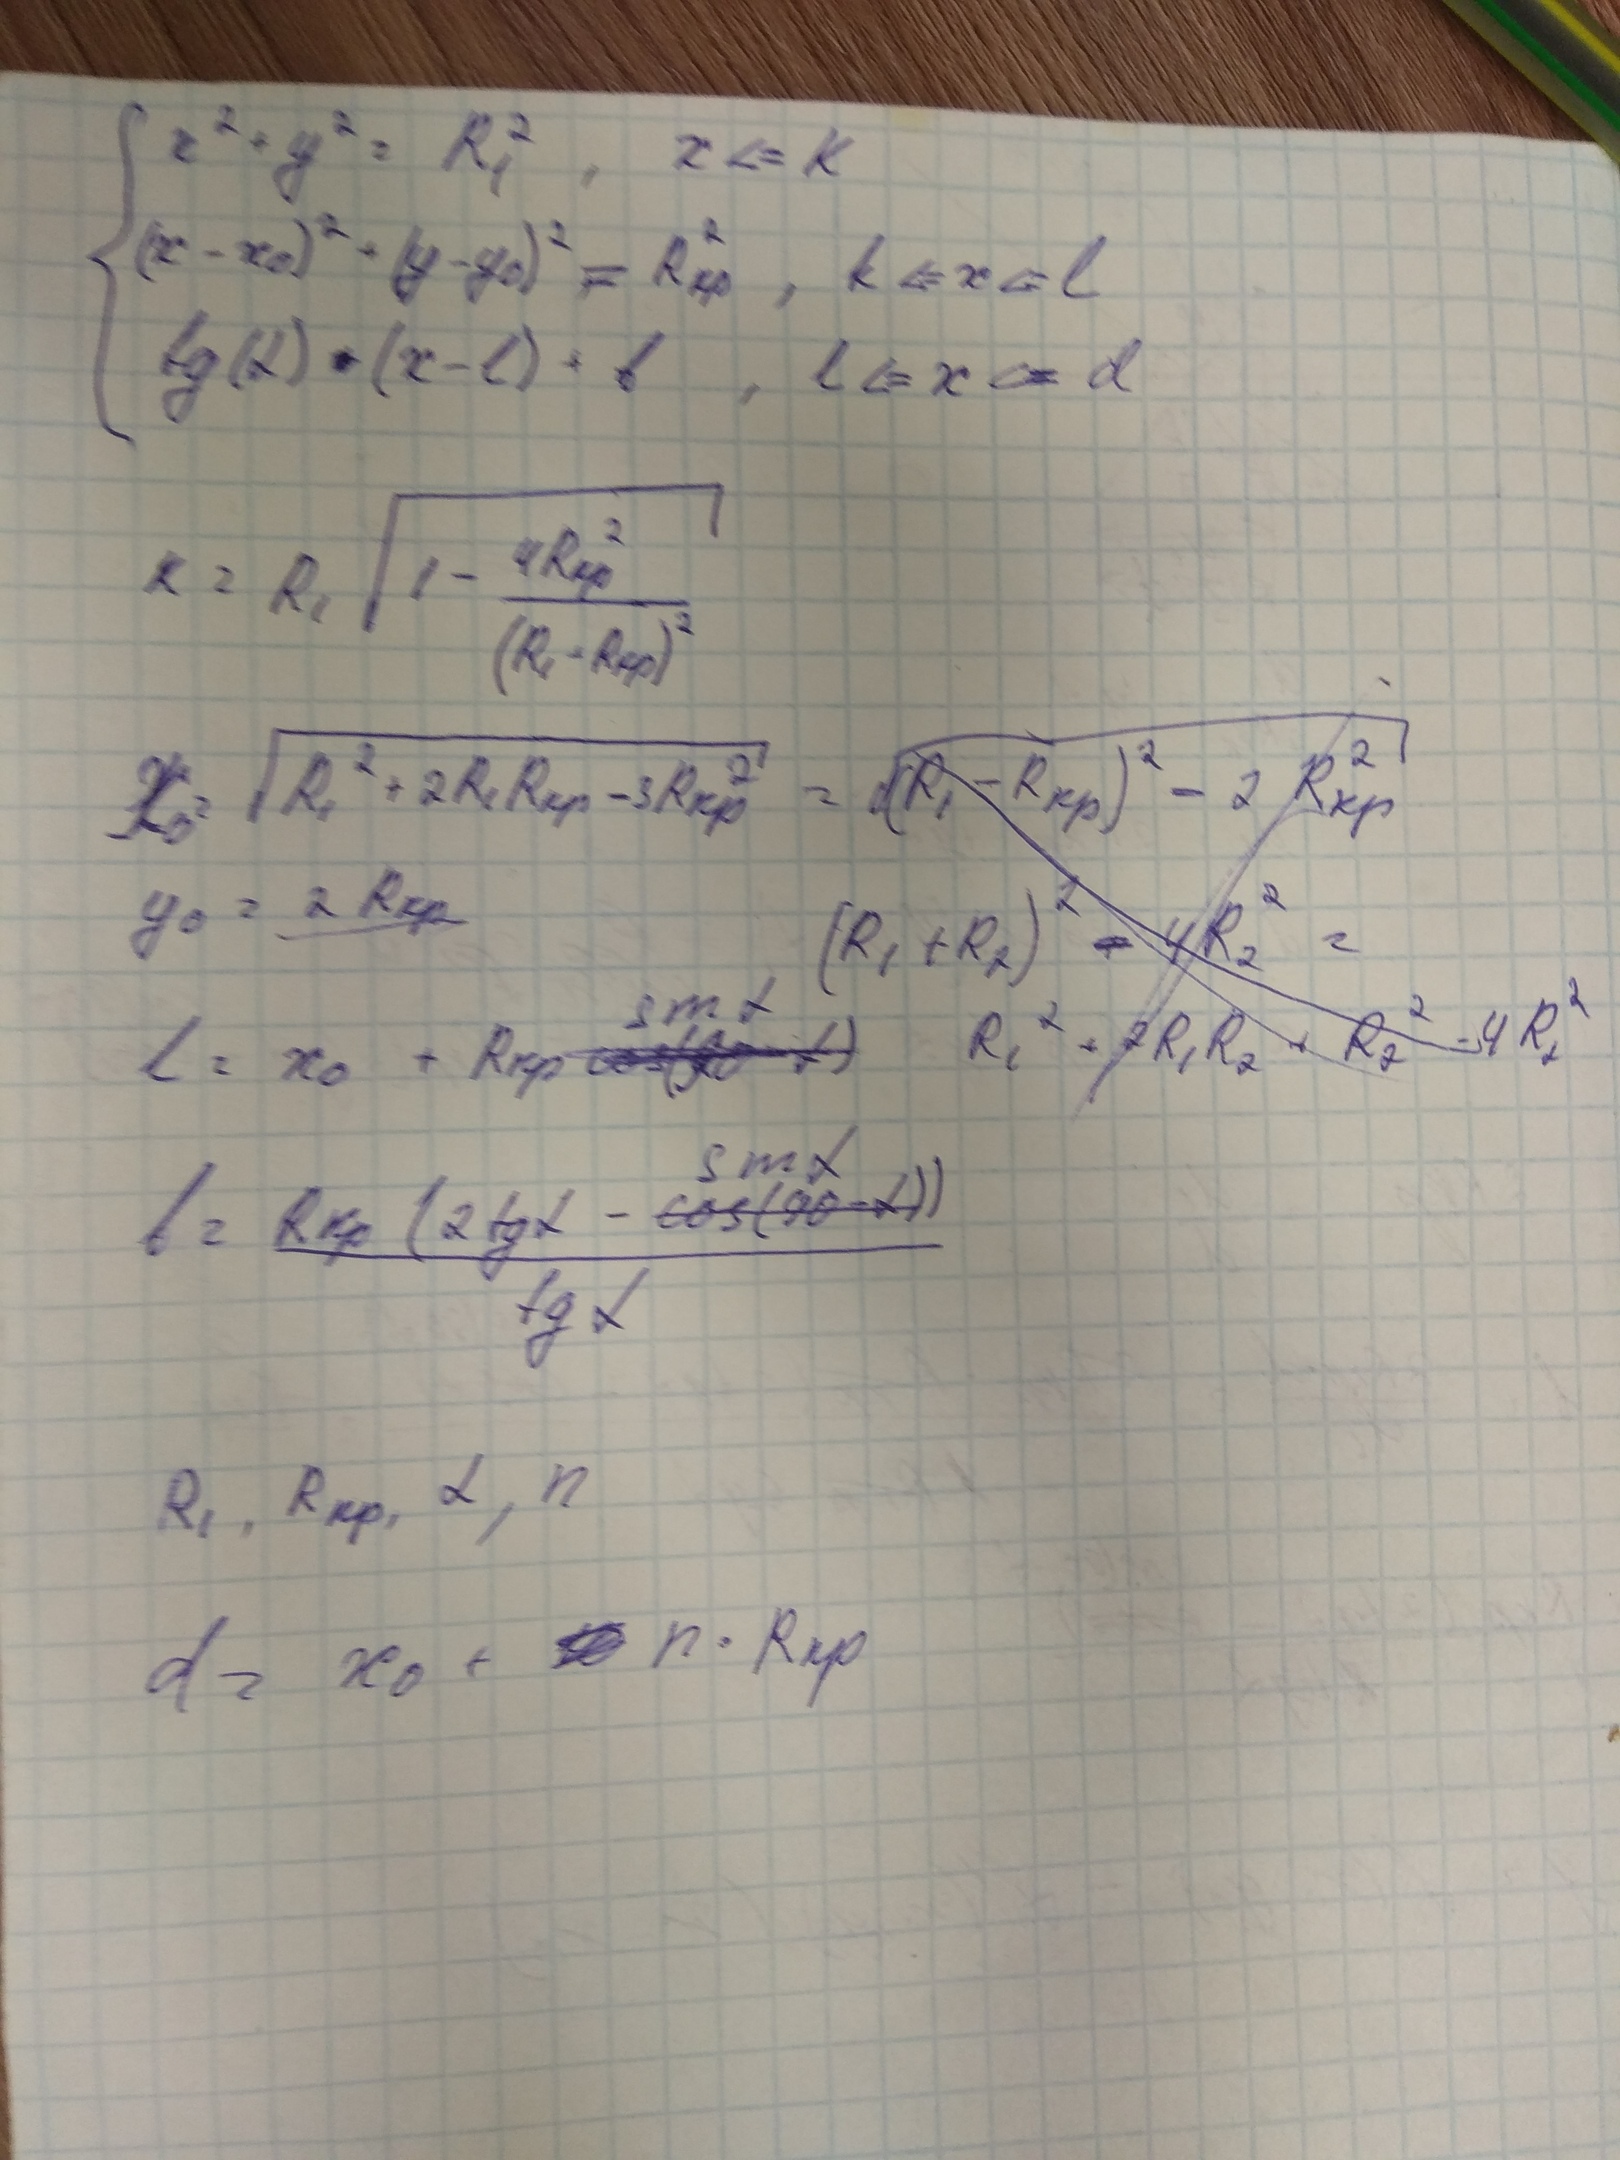 x² + y² = R₁² , x <= k
(x - x₀)² + (y - y₀)² = Rкр² , k <= x <= l
tg(α) • (x - l) + b , l <= x <= d
k = R₁ √(1 - 4Rкр² / (R₁ + Rкр)²)
x₀ = √(R₁² + 2R₁Rкр - 3Rкр²) = √((R₁ - Rкр)² - 2 Rкр²)
y₀ = 2 Rкр
(R₁ + R₂)² - 4R₂² =
R₁² + 2R₁R₂ + R₂² - 4R₂²
l = x₀ + Rкр sin α cos(90 - α)
b = Rкр (2 tgα - sin α cos(90 - α)) / tg α
R₁, Rкр, α, n
d = x₀ + n · Rкр